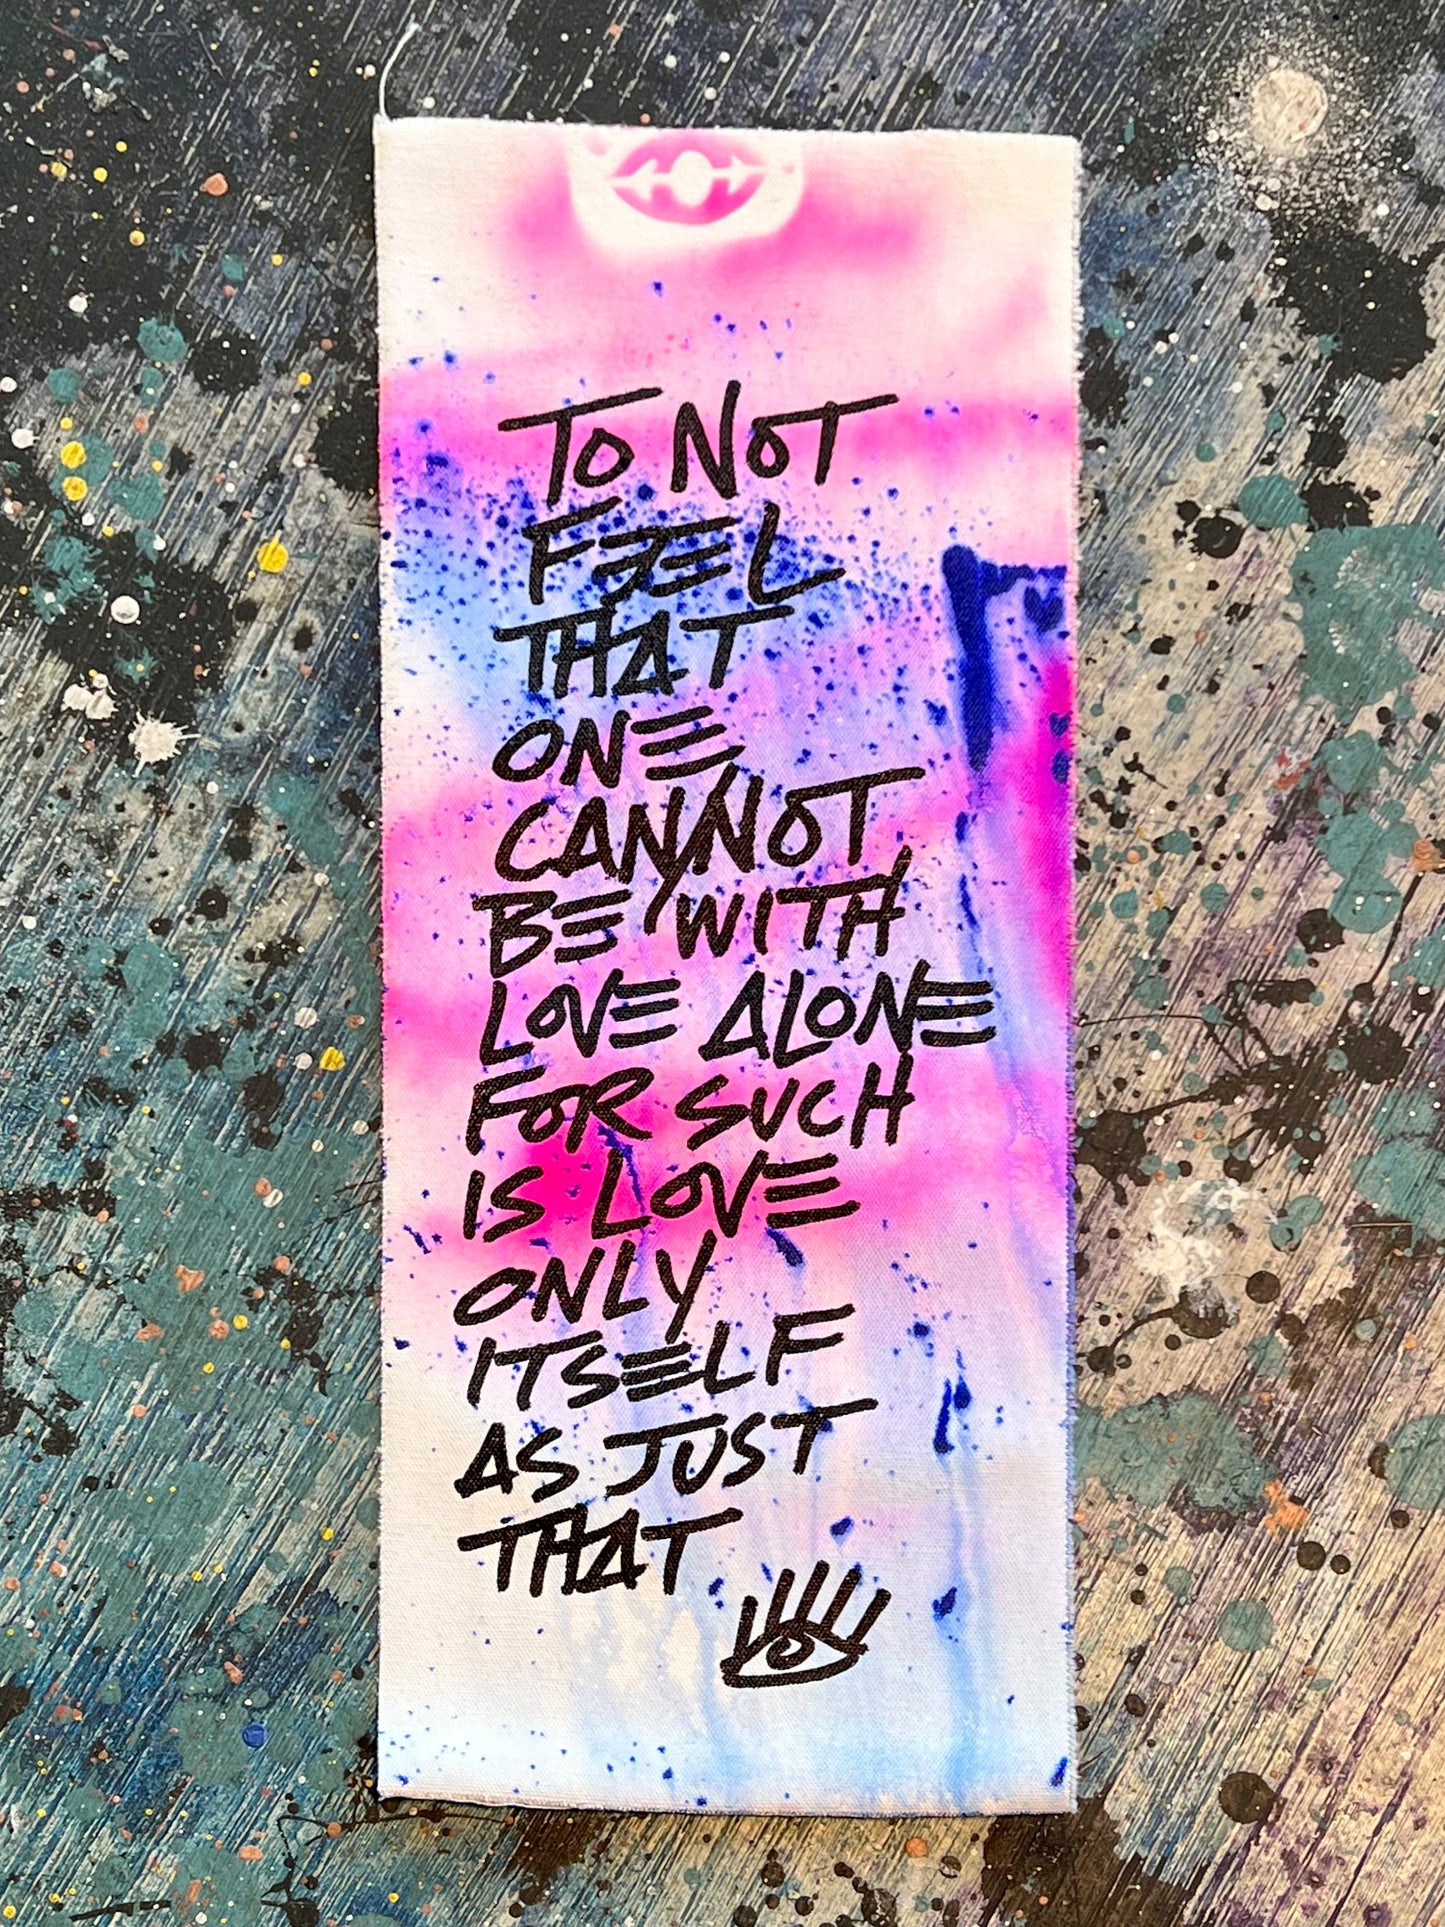 TO NOT
FEEL
THAT
ONE
CANNOT
BE WITH
LOVE ALONE
FOR SUCH
IS LOVE
ONLY
ITSELF
AS JUST
THAT